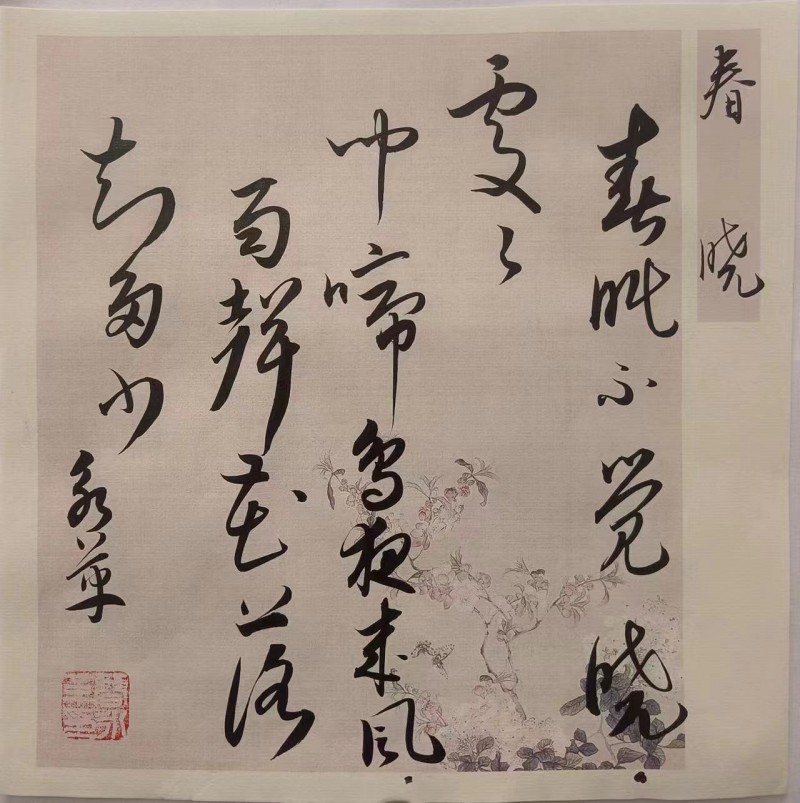 春晓
春眠不觉晓
处々
闻啼鸟夜来风
雨聲花落
知多少
永苹